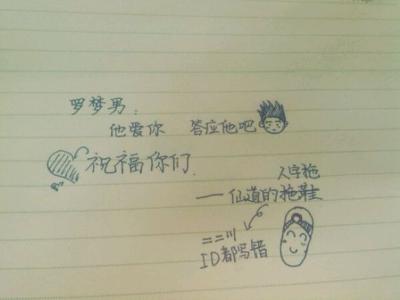 罗梦男：
他爱你 答应他吧
祝福你们
人字拖
——仙道的拖鞋
==!!!
ID都写错